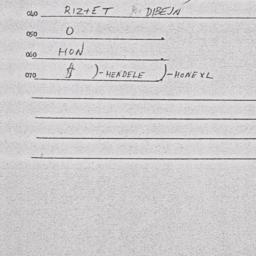 040 RIZ+ET DIBEJN
050 O
060 HON
070 )-HENDELE )-HONEYL